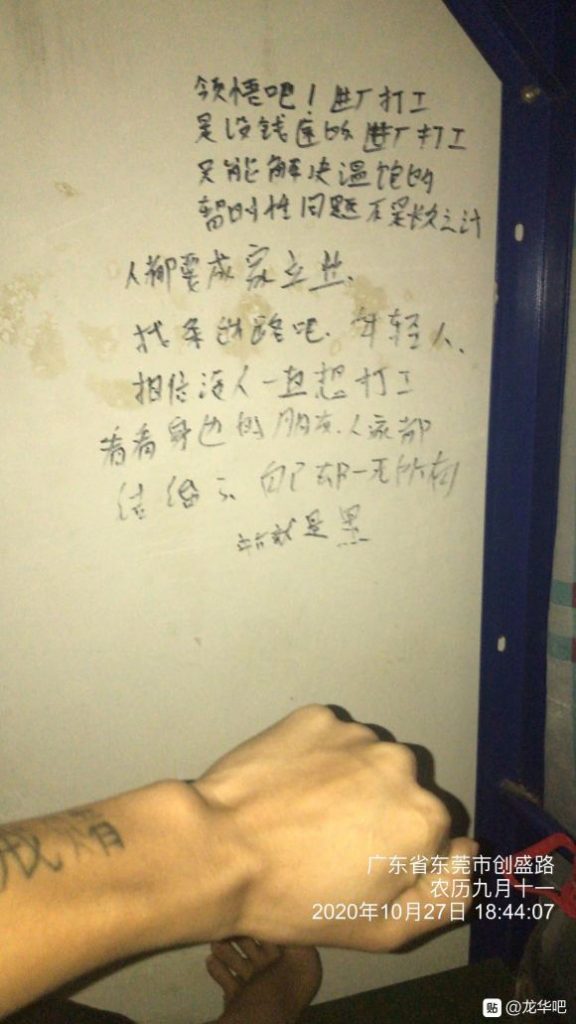 领悟吧！进厂打工
是没钱途的 进厂打工
只能解决温饱的
暂时性问题 不是长久之计
人都要成家立业、
找条出路吧、年轻人、
相信没人一直想打工
看看身边的朋友、人家都
结婚了 自己却一无所有
就是黑
戒情
广东省东莞市创盛路
农历九月十一
2020年10月27日 18:44:07
贴 @龙华吧